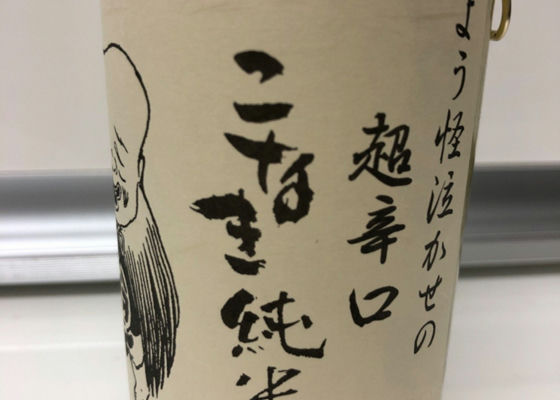 よう怪泣かせの
超辛口
こなき純米